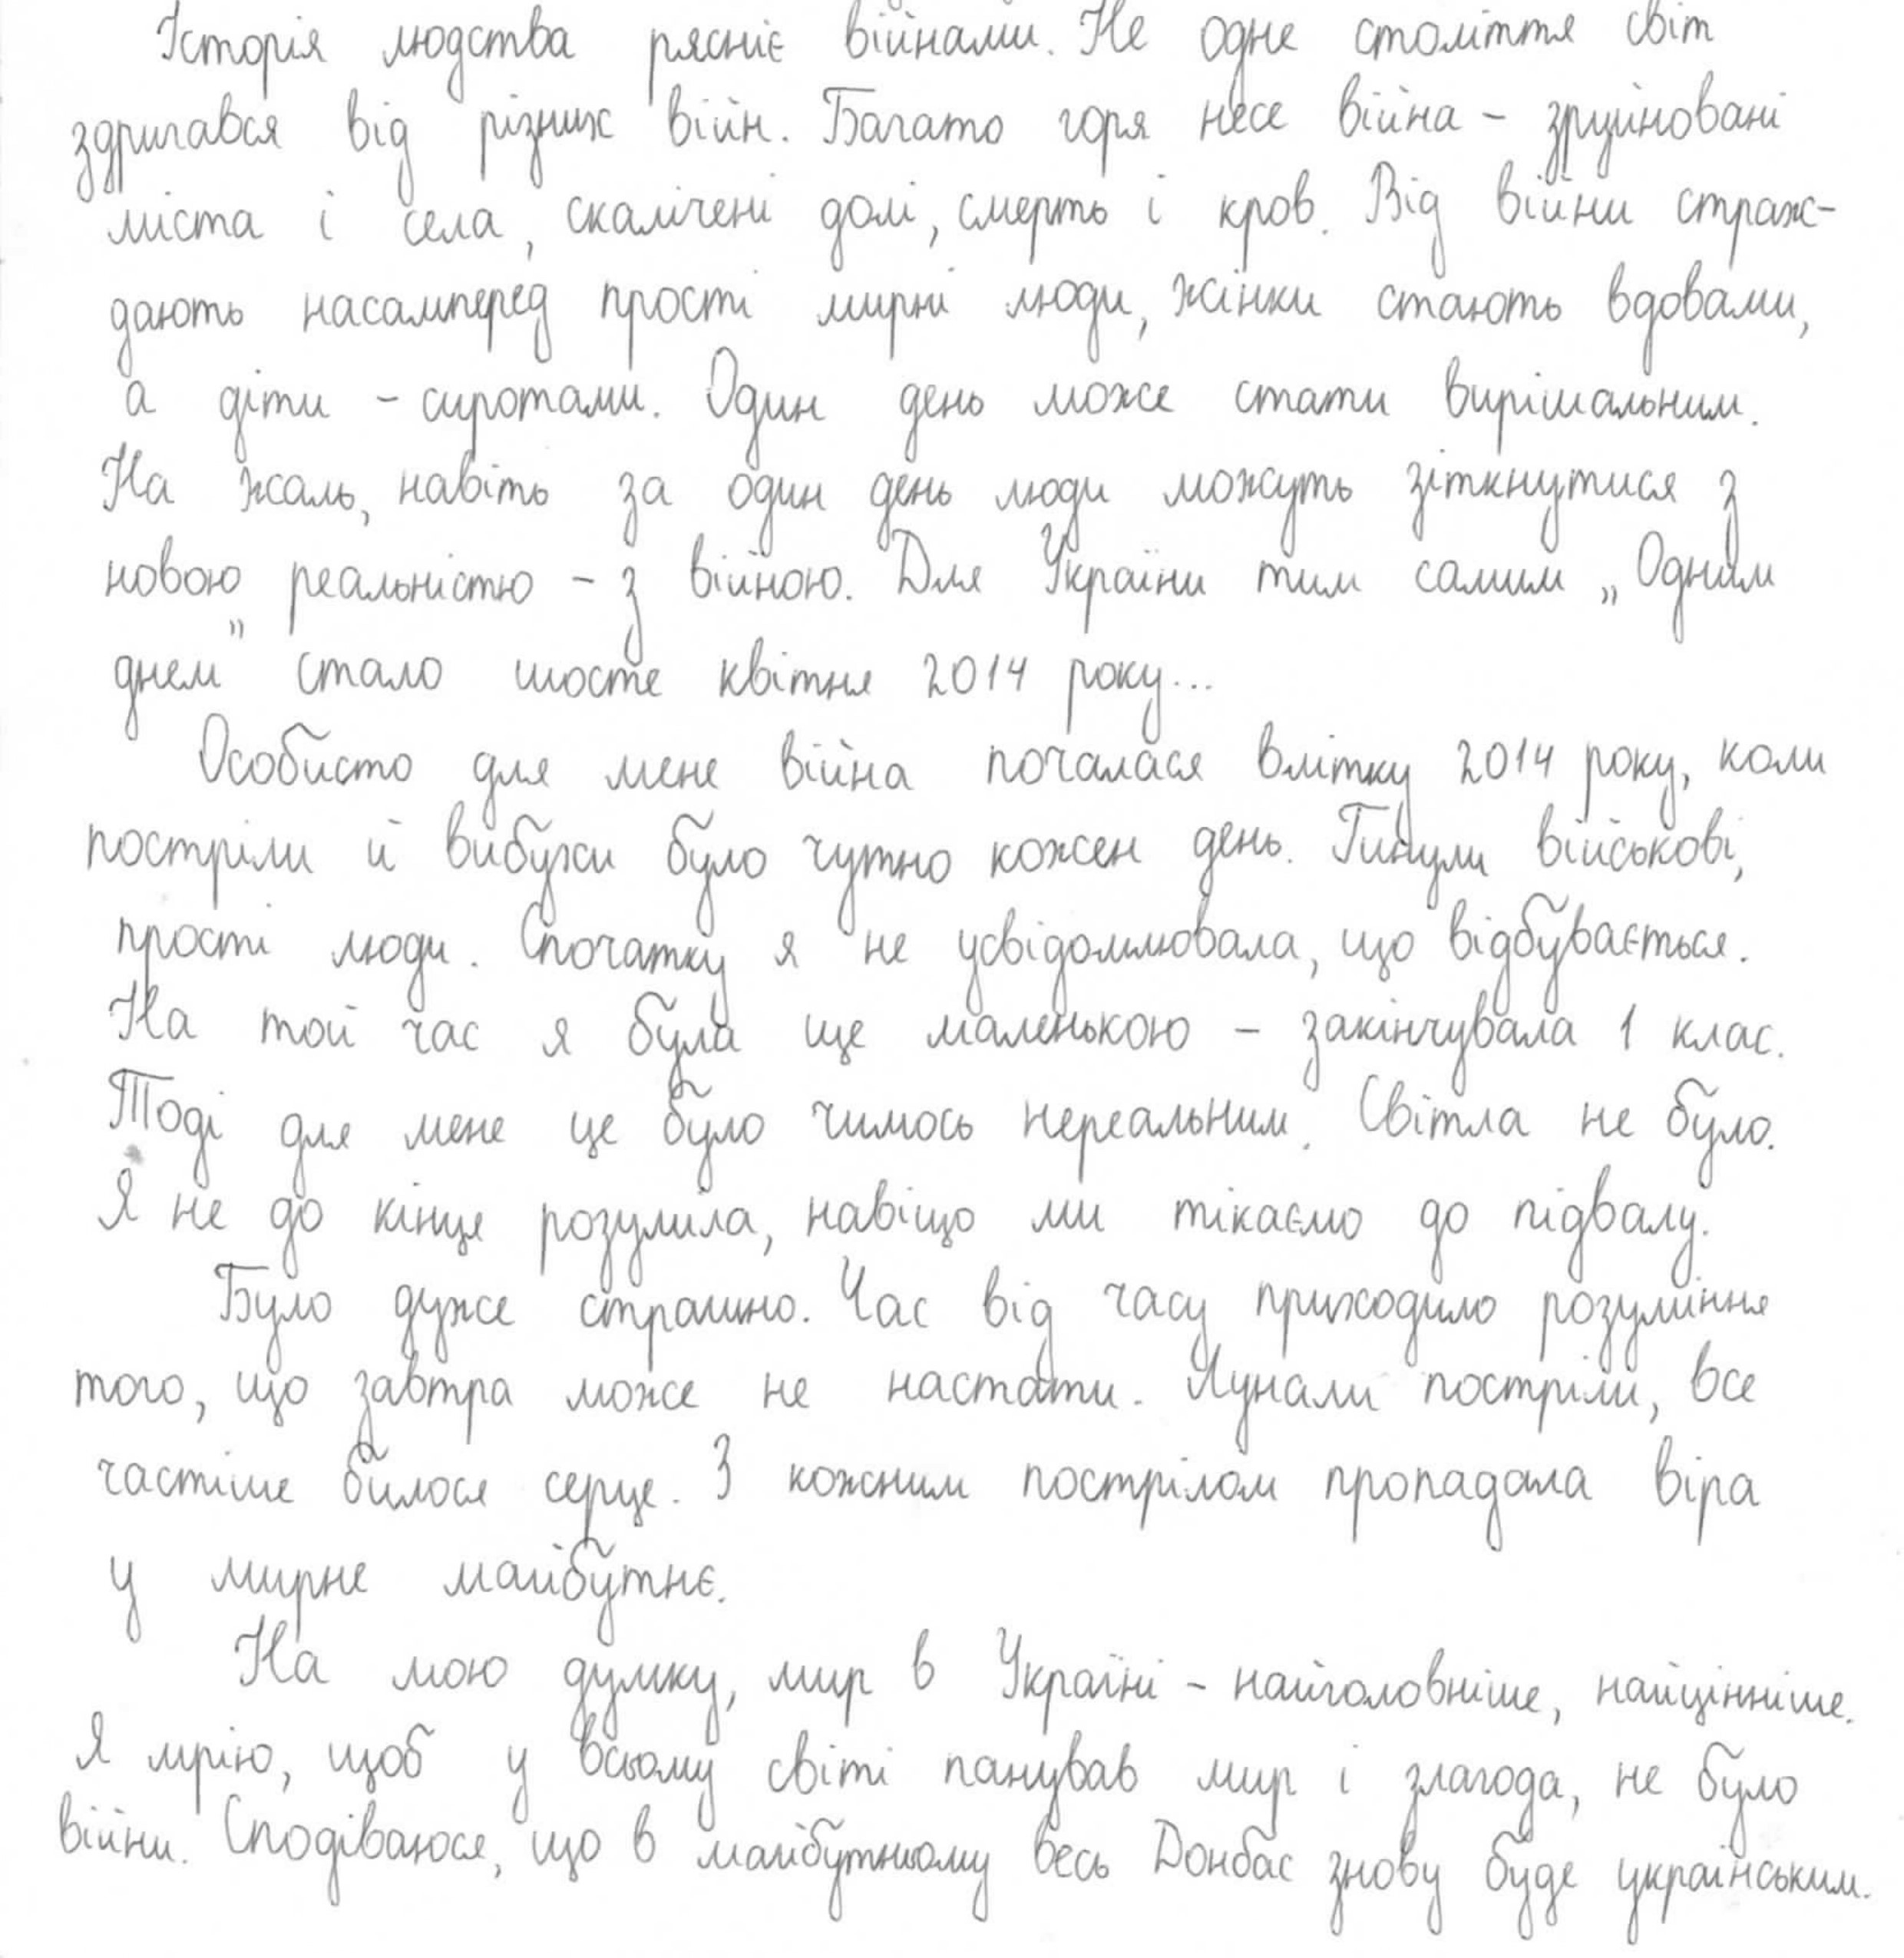 Історія людства рясніє війнами. Не одне століття світ
здригався від різних війн. Багато горя несе війна - зруйновані
міста і села, скалічені долі, смерть і кров. Від війни страж-
дають насамперед прості мирні люди, жінки стають вдовами,
а діти - сиротами. Один день може стати вирішальним.
На жаль, навіть за один день люди можуть зіткнутися з
новою реальністю - з війною. Для України тим самим „Одним
днем" стало шосте квітня 2014 року...
Особисто для мене війна почалася влітку 2014 року, коли
постріли й вибухи було чутно кожен день. Гинули військові,
прості люди. Спочатку я не усвідомлювала, що відбувається.
На той час я була ще маленькою - закінчувала 1 клас.
Тоді для мене це було чимось нереальним. Світла не було.
Я не до кінця розуміла, навіщо ми тікаємо до підвалу.
Було дуже страшно. Час від часу приходило розуміння
того, що завтра може не настати. Лунали постріли, все
частіше билося серце. З кожним пострілом пропадала віра
у мирне майбутнє.
На мою думку, мир в Україні - найголовніше, найцінніше.
Я мрію, щоб у всьому світі панував мир і злагода, не було
війни. Сподіваюся, що в майбутньому весь Донбас знову буде українським.